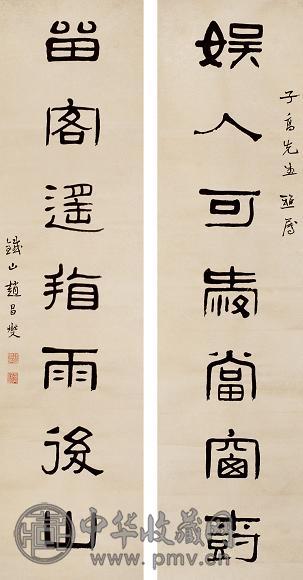 子喬先生雅屬
娛人可愛當窗尌
留客遙指雨後山
鐵山趙昌燮
中华收藏网
www.pmv.cn